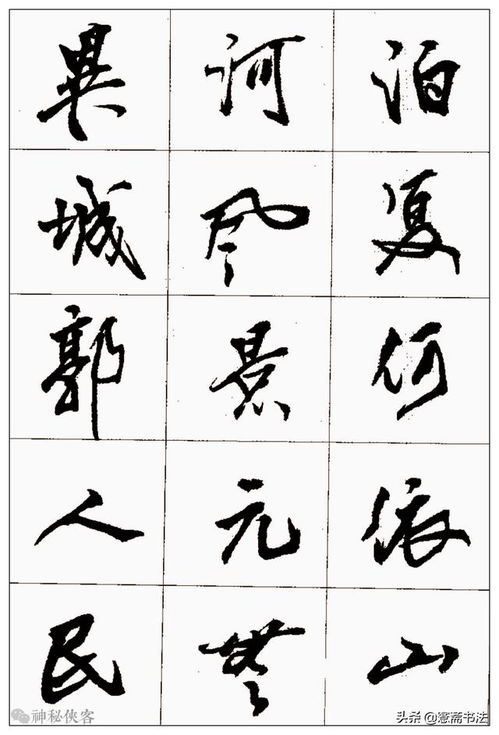 泊复何依山
河风景元無
異城郭人民
神秘侠客
头条 @愙斋书法